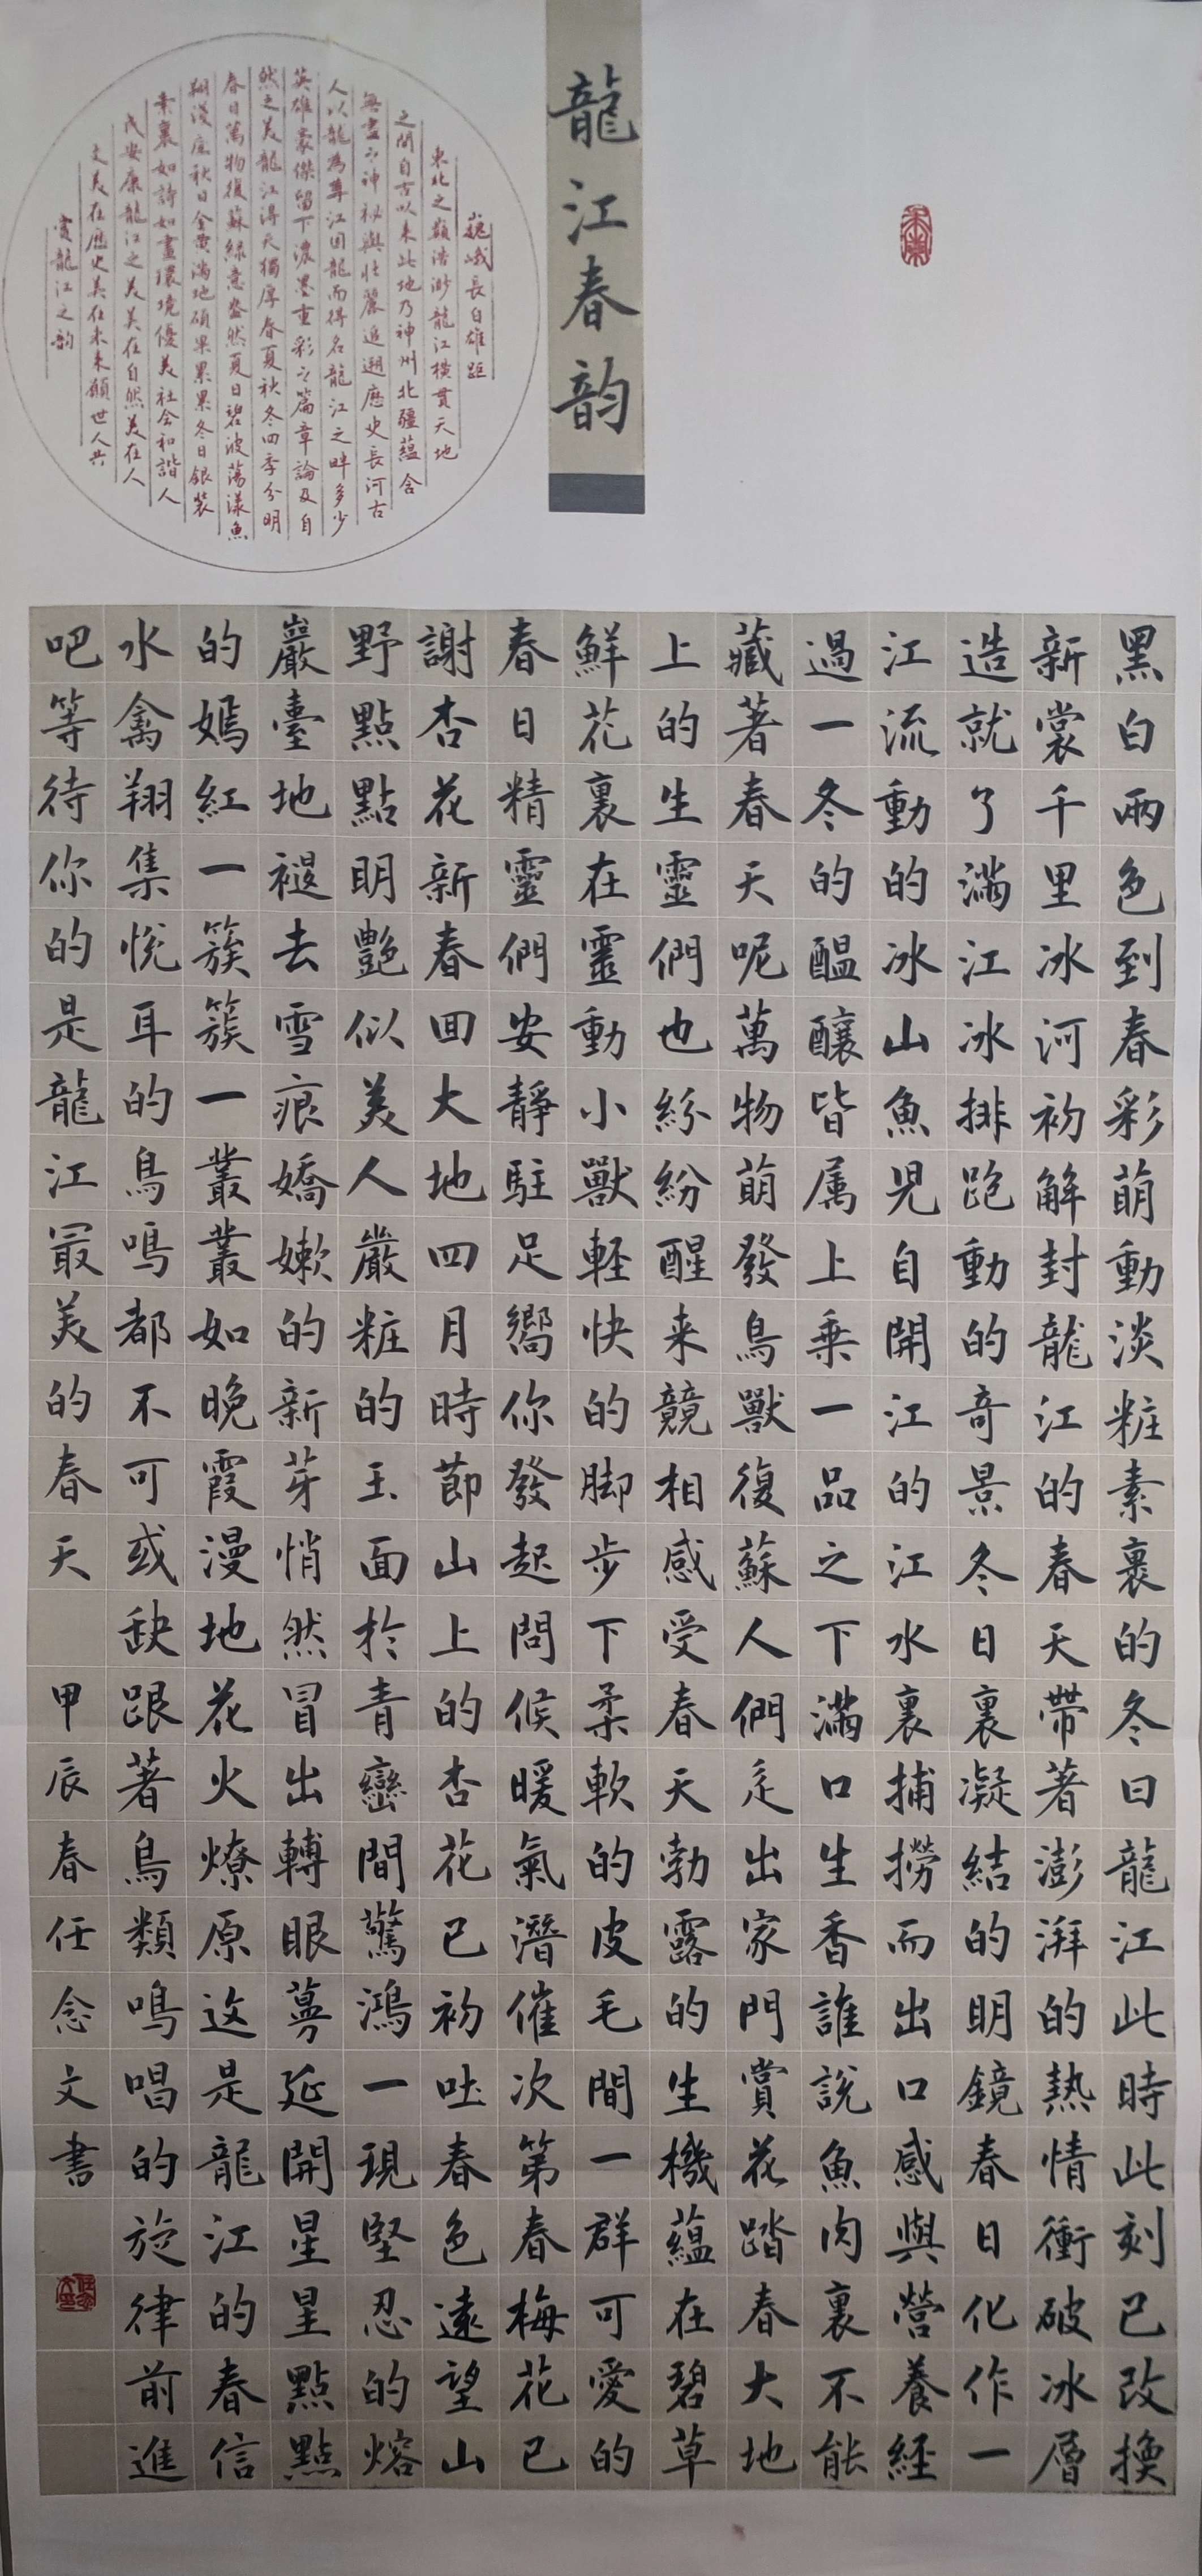 龍江春韵
巍峨長白雄踞
東北之巔浩渺龍江橫貫天地
之間自古以来此地乃神州北疆蘊含
無盡之神祕與壯麗追遡歷史長河古
人以龍為尊江因龍而得名龍江之畔多少
英雄豪傑留下濃墨重彩之篇章論及自
然之美龍江得天獨厚春夏秋冬四季分明
春日萬物復蘇綠意盎然夏日碧波蕩漾魚
翔淺底秋日金黃滿地碩果累累冬日銀裝
素裹如詩如畫環境優美社會和諧人
民安康龍江之美美在自然美在人
文美在歷史美在未来願世人共
賞龍江之韵
黑白兩色到春彩萌動淡粧素裹的冬日龍江此時此刻已改換
新裳千里冰河初解封龍江的春天帶著澎湃的熱情衝破冰層
造就了滿江冰排跑動的奇景冬日裏凝結的明鏡春日化作一
江流動的冰山魚兒自開江的江水裏捕撈而出口感與營養經
過一冬的醞釀皆属上乘一品之下滿口生香誰說魚肉裏不能
藏著春天呢萬物萌發鳥獸復蘇人們走出家門賞花踏春大地
上的生靈們也紛紛醒来競相感受春天勃露的生機蘊在碧草
鮮花裏在靈動小獸輕快的脚步下柔軟的皮毛間一群可愛的
春日精靈們安靜駐足嚮你發起問候暖氣潛催次第春梅花已
謝杏花新春回大地四月時節山上的杏花已初吐春色遠望山
野點點明艷似美人嚴粧的玉面於青巒間驚鴻一現堅忍的熔
巖臺地褪去雪痕嬌嫩的新芽悄然冒出轉眼蔓延開星星點點
的嫣紅一簇簇一叢叢如晚霞漫地花火燎原这是龍江的春信
水禽翔集悅耳的鳥鳴都不可或缺跟著鳥類鳴唱的旋律前進
吧等待你的是龍江最美的春天 甲辰春任念文書